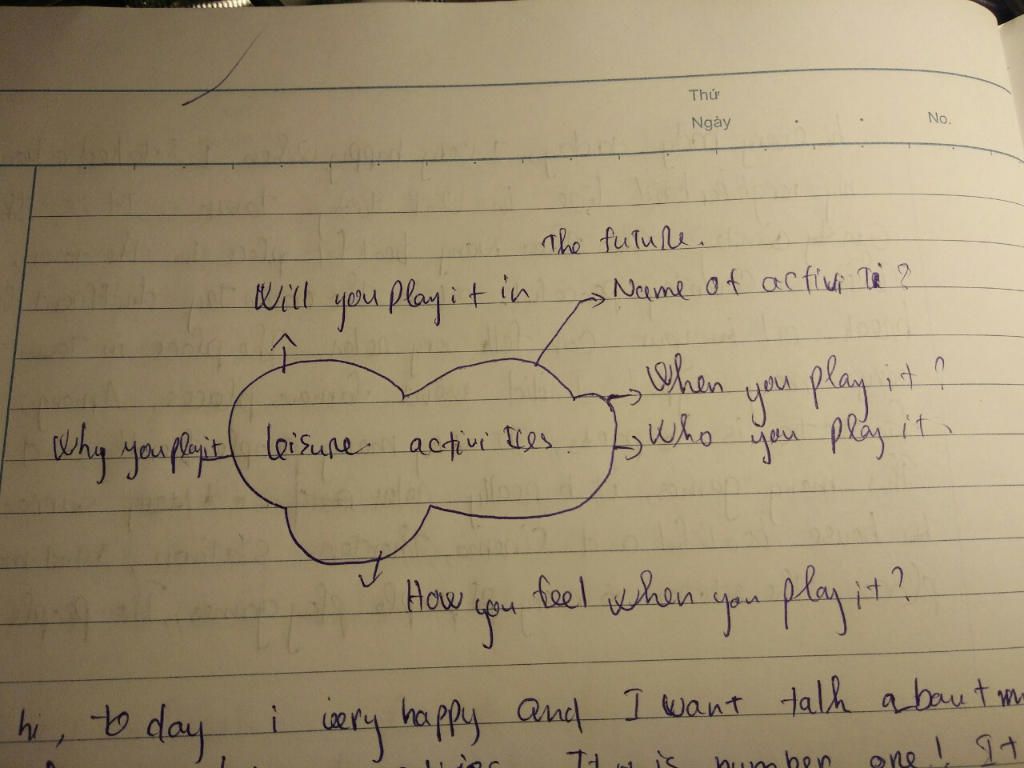 Thứ
Ngày . . No.
The future.
Will you play it in
Name of activi ti?
When you play it?
Why you play it
leisure activi ties.
Who you play it
How you feel when you play it?
hi, to day i very happy and I want talk about m
This is number one! It